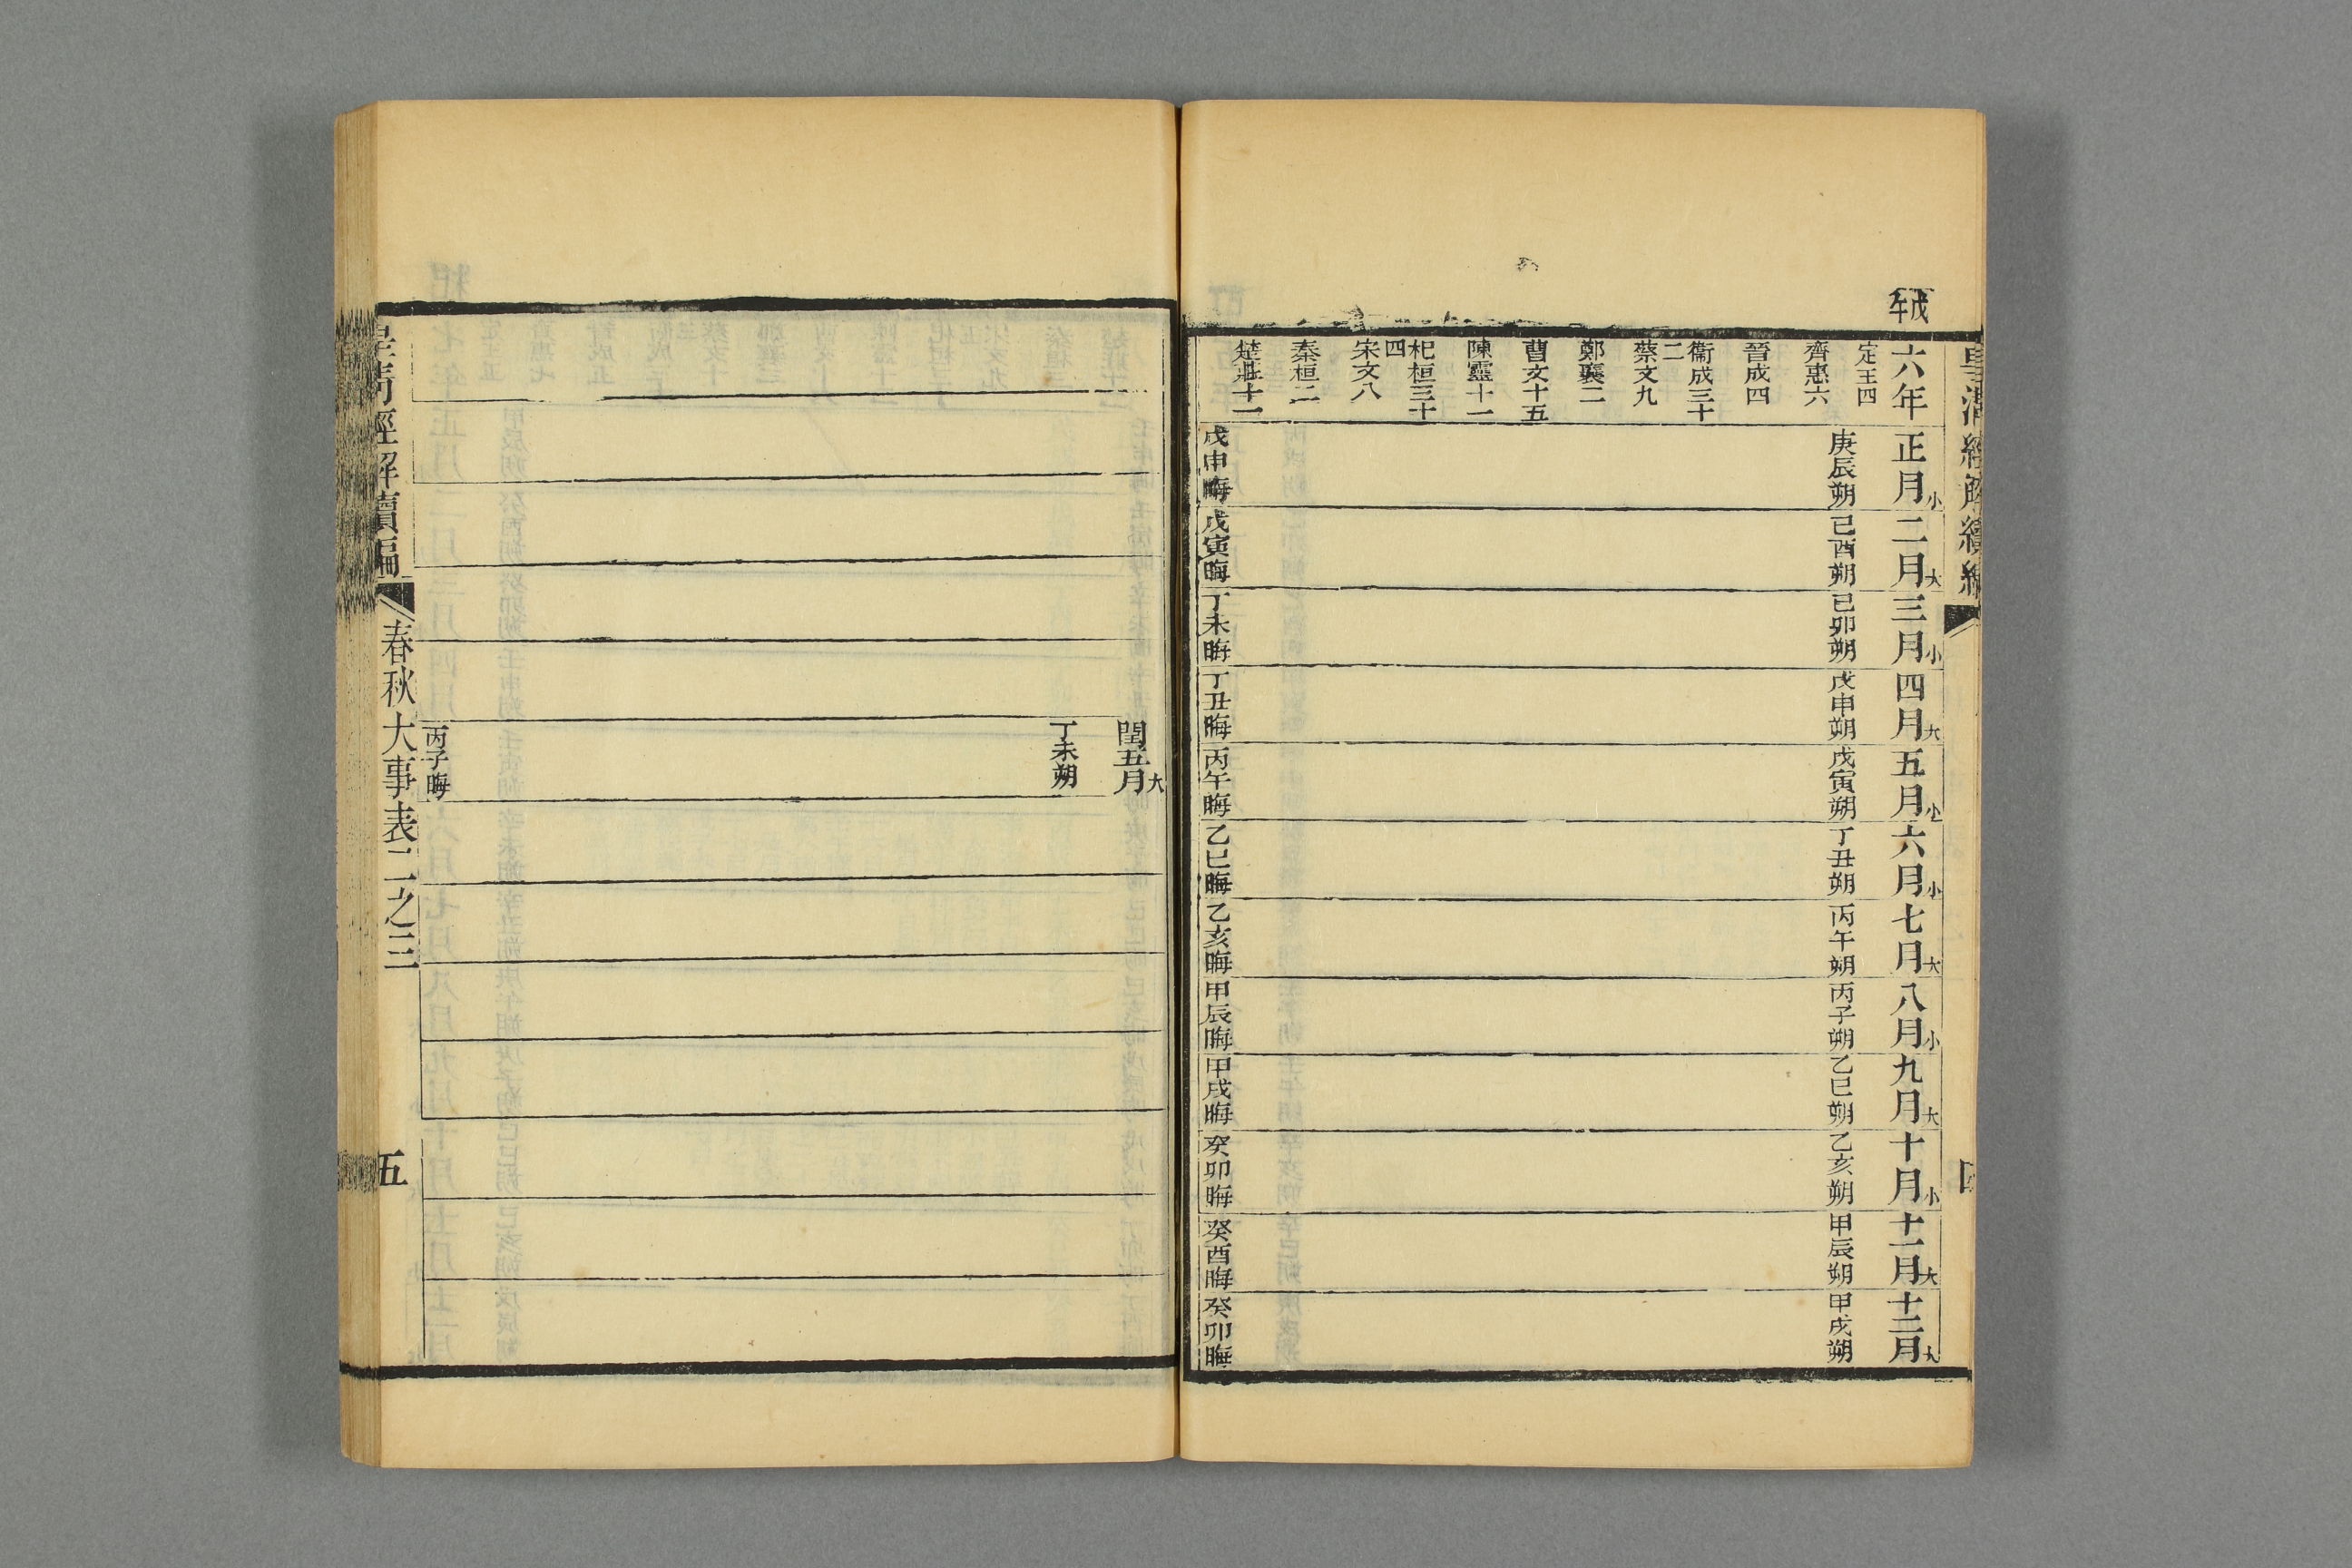 皇清經解續編
戊午
六年
定王四
齊惠六
晉成四
衞成三十
二
蔡文九
鄭襄二
曹文十五
陳靈十一
杞桓三十
四
宋文八
秦桓二
楚莊十一
正月小
庚辰朔
戊申晦
二月大
己酉朔
戊寅晦
三月小
己卯朔
丁未晦
四月大
戊申朔
丁丑晦
五月小
戊寅朔
丙午晦
六月小
丁丑朔
乙巳晦
七月大
丙午朔
乙亥晦
八月小
丙子朔
甲辰晦
九月大
乙巳朔
甲戌晦
十月小
乙亥朔
癸卯晦
十一月大
甲辰朔
癸酉晦
十二月大
甲戌朔
癸卯晦
閏五月大
丁未朔
丙子晦
皇清經解續編
春秋大事表二之三
五